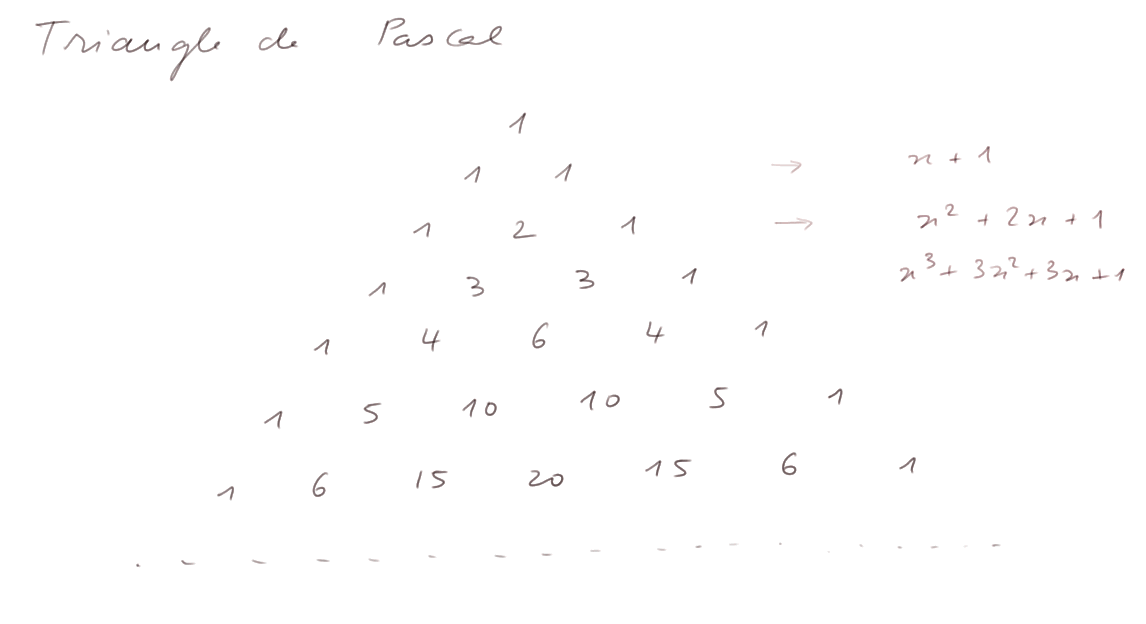 Triangle de Pascal
1
1 1 → x + 1
1 2 1 → x² + 2x + 1
1 3 3 1 x³ + 3x² + 3x + 1
1 4 6 4 1
1 5 10 10 5 1
1 6 15 20 15 6 1